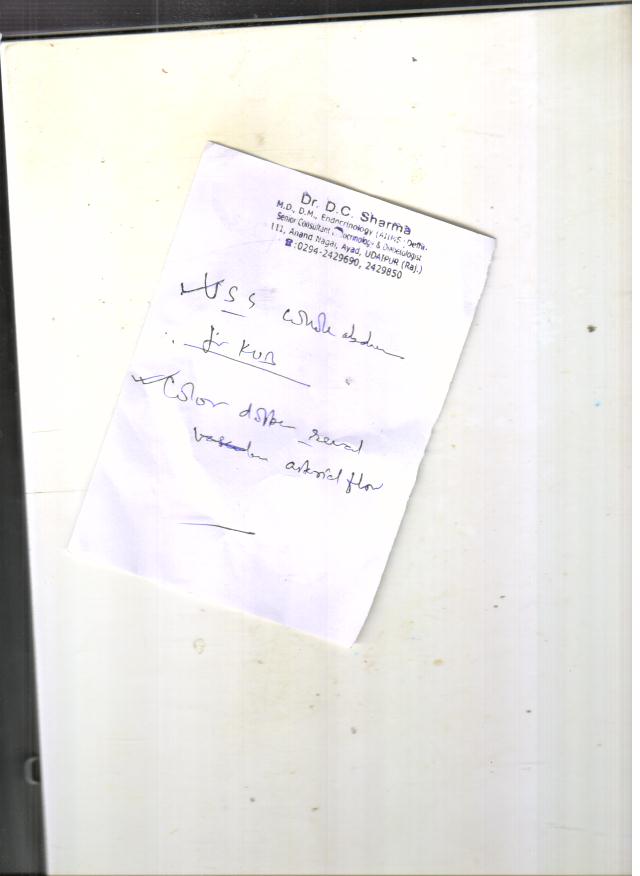 Dr. D.C. Sharma
M.D., D.M., Endocrinology (AIIMS - Delhi)
Senior Consultant Endocrinology & Diabetologist
111, Anand Nagar, Ayad, UDAIPUR (Raj.)
☎:0294-2429690, 2429850
USS whole abdomen
for KUB
Color doppler renal
arterial flow